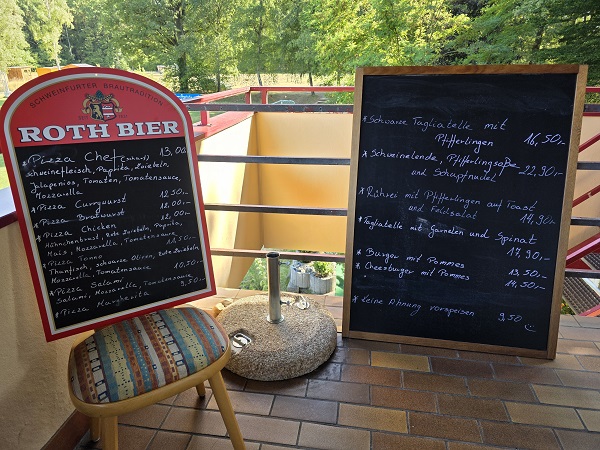 SCHWEINFURTER BRAUTRADITION
ROTH BIER
*Pizza Chef (scharf) 13,00
Schweinefleisch, Paprika, Zwiebeln
Jalapenios, Tomaten, Tomatensauce,
Mozzarella
*Pizza Currywurst 12,50
*Pizza Bratwurst 12,00
*Pizza Chicken 12,00
Hühnchenbrust, Rote Zwiebeln, Paprika,
Mais, Mozzarella, Tomatensauce
*Pizza Tonno 11,50
Thunfisch, schwarze Oliven, Rote Zwiebeln
Mozzarella, Tomatensauce
*Pizza Salami 10,50
Salami, Mozzarella, Tomatensauce
*Pizza Margherita 9,50
*Schwarze Tagliatelle mit
Pfifferlingen 16,50
*Schweinelende, Pfifferlingsoße
und Schupfnudel 22,90
*Rührei mit Pfifferlingen auf Toast
und Feldsalat 14,90
*Tagliatelle mit Garnelen und Spinat
17,90
*Burger mit Pommes 13,50
*Cheesburger mit Pommes 14,50
*Keine Ahnung vorspeisen 9,50